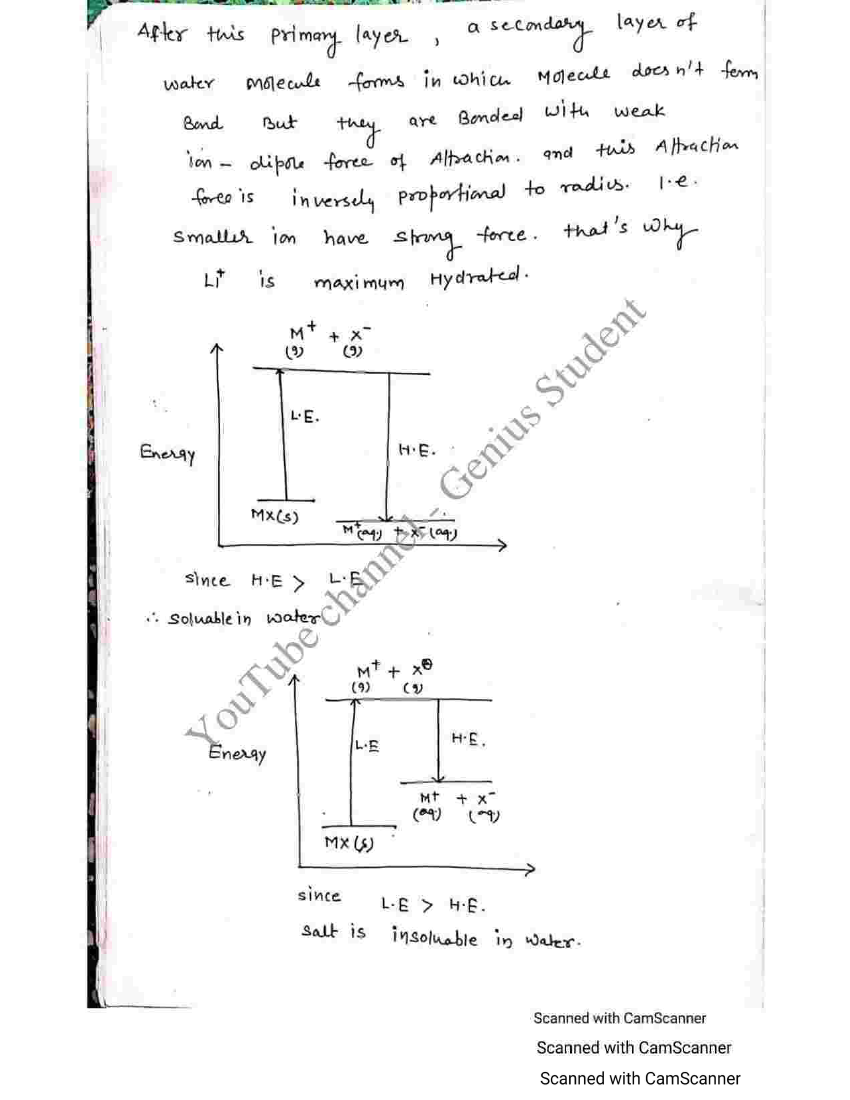 After this primary layer, a secondary layer of
water molecule forms in which Molecule doesn't form
Bond But they are Bonded with weak
ion - dipole force of Attraction. and this Attraction
force is inversely proportional to radius. I.e.
smaller ion have strong force. that's why
Li⁺ is maximum Hydrated.
M⁺ + X⁻
(g) (g)
L.E.
H.E.
Energy
MX(s)
M⁺(aq.) + X⁻(aq.)
since H.E > L.E
∴ soluable in water
M⁺ + X⊖
(g) (g)
L.E
H.E.
Energy
M⁺ + X⁻
(aq.) (aq)
MX(s)
since L.E > H.E.
salt is insoluable in water.
YouTube channel - Genius Student
Scanned with CamScanner
Scanned with CamScanner
Scanned with CamScanner